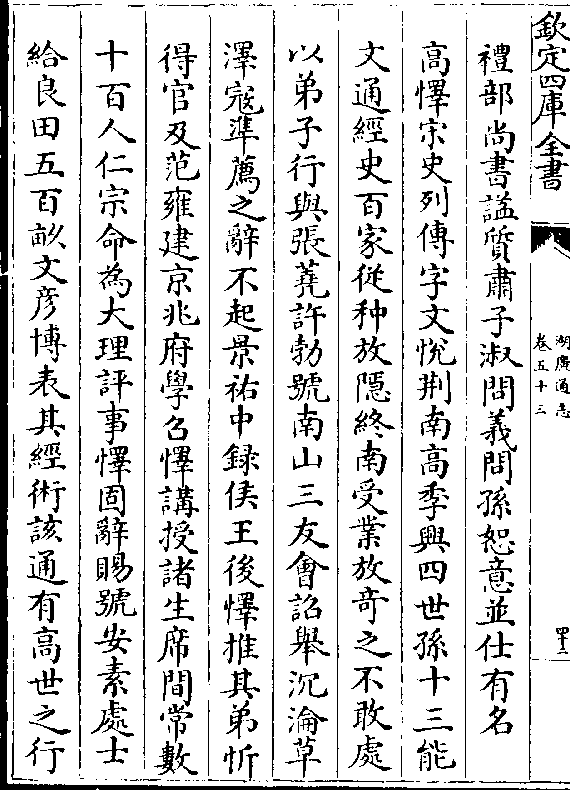 欽定四庫全書
湖廣通志
卷五十三
禮部尚書諡質肅子淑問義問孫恕意並仕有名
高懌宋史列傳字文悅荆南高季興四世孫十三能
文通經史百家從种放隱終南受業放奇之不敢處
以弟子行與張蕘許勃號南山三友會詔舉沉淪草
澤寇準薦之辭不起景祐中録侯王後懌推其弟忻
得官及范雍建京兆府學召懌講授諸生席間常數
十百人仁宗命為大理評事懌固辭賜號安素處士
給良田五百畝文彦博表其經術該通有高世之行